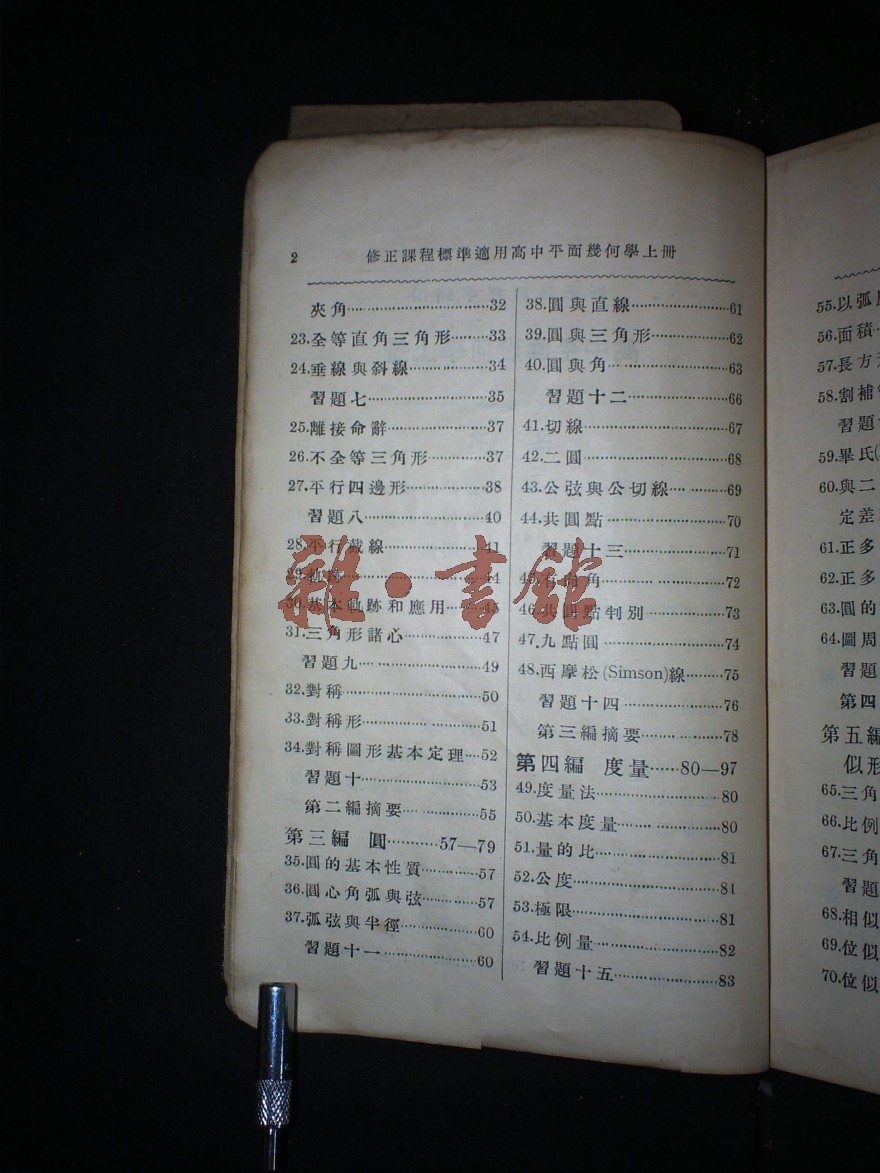 2 修正課程標準適用高中平面幾何學上冊
夾角……32
23.全等直角三角形……33
24.垂線與斜線……34
習題七……35
25.離接命辭……37
26.不全等三角形……37
27.平行四邊形……38
習題八……40
28.平行截線……41
29.軌跡……44
30.基本軌跡和應用……45
31.三角形諸心……47
習題九……49
32.對稱……50
33.對稱形……51
34.對稱圖形基本定理……52
習題十……53
第二編摘要……55
第三編 圓……57—79
35.圓的基本性質……57
36.圓心角弧與弦……57
37.弧弦與半徑……60
習題十一……60
38.圓與直線……61
39.圓與三角形……62
40.圓與角……63
習題十二……66
41.切線……67
42.二圓……68
43.公弦與公切線……69
44.共圓點……70
習題十三……71
45.有向角……72
46.共圓點判別……73
47.九點圓……74
48.西摩松(Simson)線……75
習題十四……76
第三編摘要……78
第四編 度量……80—97
49.度量法……80
50.基本度量……80
51.量的比……81
52.公度……81
53.極限……81
54.比例量……82
習題十五……83
55.以弧
56.面積
57.長方
58.割補
習題
59.畢氏
60.與二
定差
61.正多
62.正多
63.圓的
64.圓周
習題
第四
第五編
似形
65.三角
66.比例
67.三角
習題
68.相似
69.位似
70.位似
雜·書館